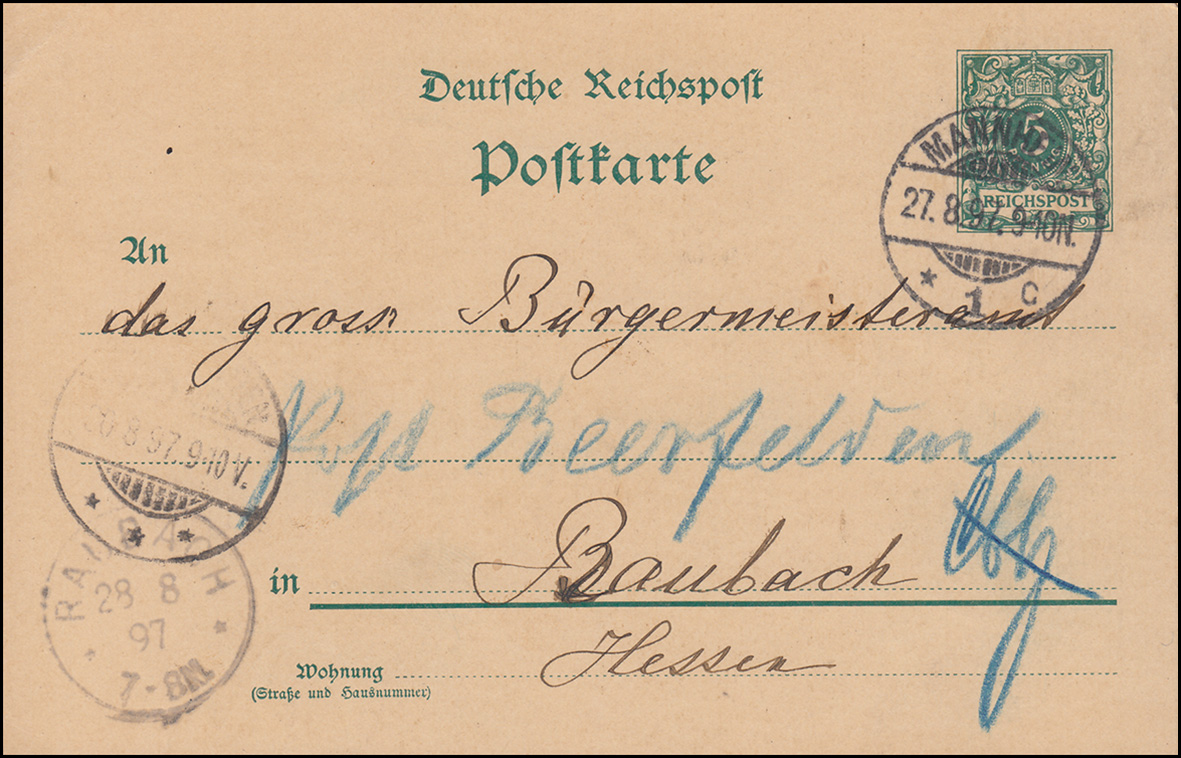 Deutsche Reichspost
Postkarte
5
REICHSPOST
MANNHEIM
27. 8. 97. 9-10N.
* 1 C
An
das gross. Bürgermeisteramt
8 97. 9-10V.
* * *
Post Beerfelden
in Raubach
Hessen
RAUBACH
28 8
97
7-8N
Wohnung
(Straße und Hausnummer)